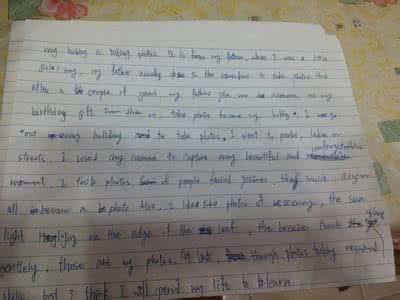 my hobby is taking photos. It is from my father, when I was a little
girls, my father usually in the sometime to take photos. And
after a couple of years my father give me camera as my
birthday gift. From then on, take photos became my hobby. I
out every holiday to take photos, I went to parks, lakes or
streets. I used my camera to capture every beautiful and unforgettable
moment. I take photos of people facial, their smile,
all become a photo. Also, I like take photos of scenery, the sun
light on the edge of the leaf, the breeze grass
gently, those are my photos. At last, through photos taking
but I think I will spend my life to learn.